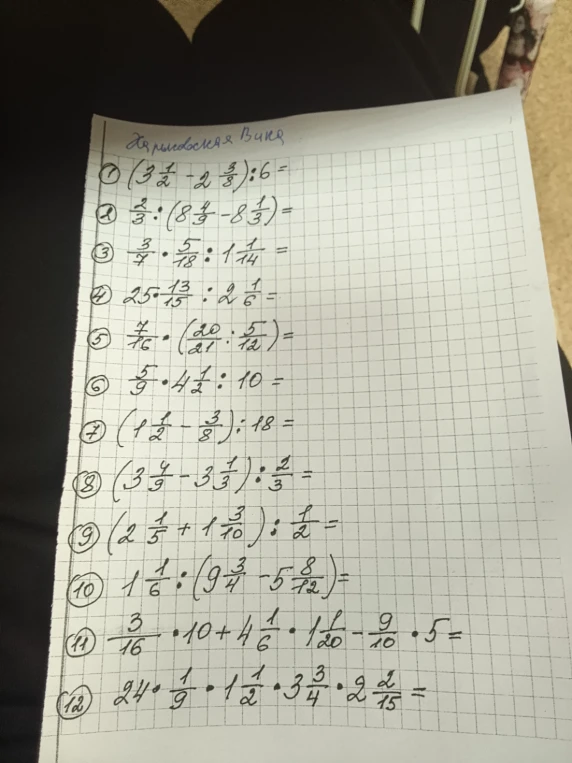 Харьковская Вика
① (3 1/2 - 2 3/8) : 6 =
② 2/3 : (8 4/9 - 8 1/3) =
③ 3/7 · 5/18 : 1 1/14 =
④ 25 · 13/15 : 2 1/6 =
⑤ 7/16 · (20/21 : 5/12) =
⑥ 5/9 · 4 1/2 : 10 =
⑦ (1 1/2 - 3/8) : 18 =
⑧ (3 4/9 - 3 1/3) : 2/3 =
⑨ (2 1/5 + 1 3/10) : 1/2 =
⑩ 1 1/6 : (9 3/4 - 5 8/12) =
⑪ 3/16 · 10 + 4 1/6 · 1 1/20 - 9/10 · 5 =
⑫ 24 · 1/9 · 1 1/2 · 3 3/4 · 2 2/15 =